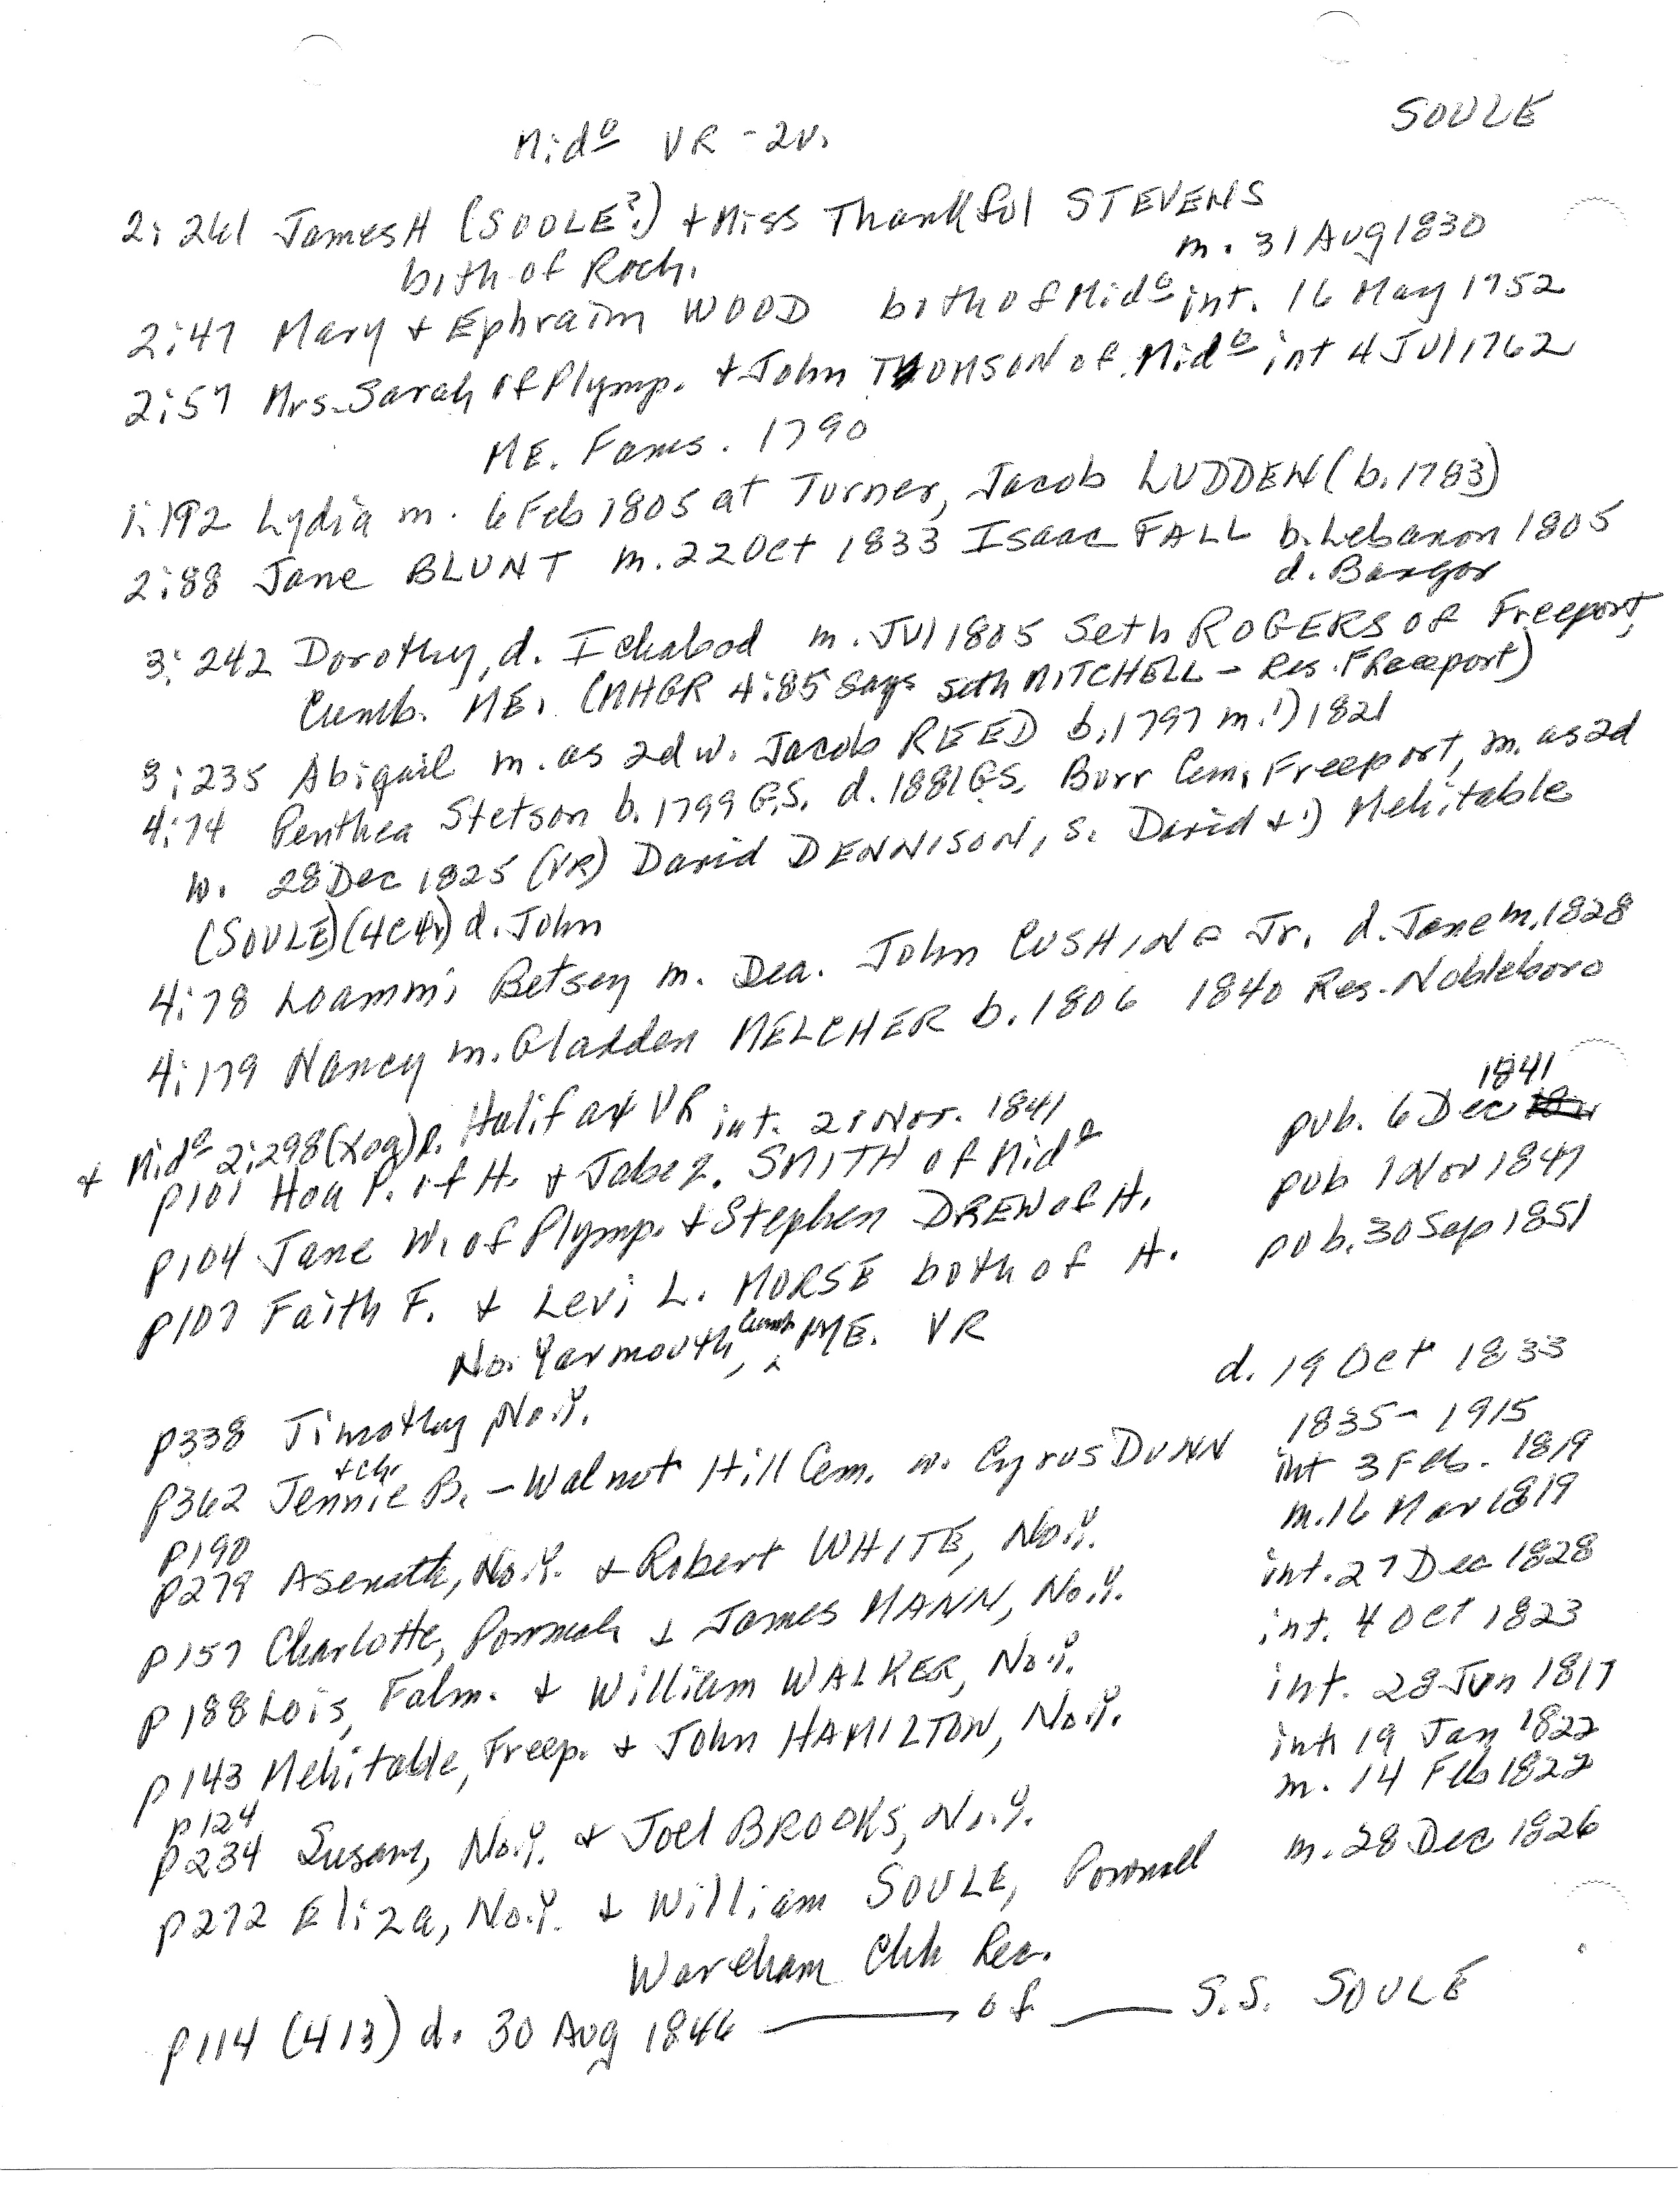 SOULE
Mid° VR - 2v.
2:261 James H (SOOLE?) + Miss Thankful STEVENS
both of Roch. m. 31 Aug 1830
2:47 Mary + Ephraim WOOD both of Mid° int. 16 May 1752
2:57 Mrs. Sarah of Plymp. + John THOMSON of Mid° int 4 Jul 1762
ME. Fams. 1790
1:192 Lydia m. 6 Feb 1805 at Turner, Jacob LUDDEN (b. 1783)
2:88 Jane BLUNT m. 22 Oct 1833 Isaac FALL b. Lebanon 1805
d. Bangor
3:242 Dorothy, d. Ichabod m. Jul 1805 Seth ROGERS of Freeport,
Cumb. ME. (NHGR 4:85 says Seth MITCHELL - Res. Freeport)
3:235 Abigail m. as 2d w. Jacob REED b. 1797 m. 1) 1821
4:74 Penthea Stetson b. 1799 G.S. d. 1881 G.S. Burr Cem, Freeport, m. as 2d
w. 28 Dec 1825 (VR) David DENNISON, s. David + 1) Mehitable
(SOULE) d. John
4:78 Loammi Betsey m. Dea. John CUSHING Jr. d. Jane m. 1828
4:179 Nancy m. Gladden MELCHER b. 1806 1840 Res. Nobleboro
Halifax VR
+ Mid° 2:298 int. 21 Nov. 1841 pub. 6 Dec 1841
p101 Hoa P. of H. + Jabez. SMITH of Mid°
p104 Jane W. of Plymp. + Stephen DREW of H. pub 1 Nov 1847
p107 Faith F. + Levi L. MORSE both of H. pub. 30 Sep 1851
No. Yarmouth, Cumb ME. VR
p338 Timothy No. Y. d. 19 Oct 1833
p362 Jennie B. + ch - Walnut Hill Cem. w. Cyrus DUNN 1835 - 1915
p190 int 3 Feb. 1819
p279 Asenath, No. Y. + Robert WHITE, No. Y. m. 16 Mar 1819
p157 Charlotte, Pownal + James MANN, No. Y. int. 27 Dec 1828
p188 Lois, Falm. + William WALKER, No. Y. int. 4 Oct 1823
p143 Mehitable, Freep. + John HAMILTON, No. Y. int. 28 Jun 1817
p124 int 19 Jan 1822
p234 Susan, No. Y. + Joel BROOKS, No. Y. m. 14 Feb 1822
p272 Eliza, No. Y. + William SOULE, Pownall m. 28 Dec 1826
Wareham Chh Rec.
p114 (413) d. 30 Aug 1846 ——— of ——— S.S. SOULE